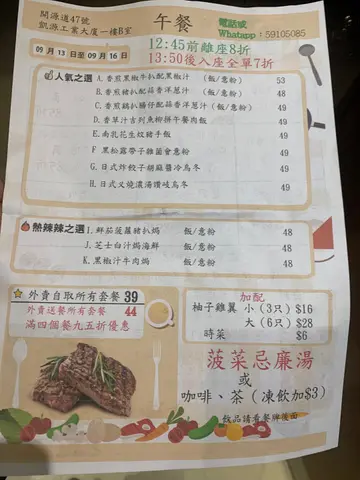 開源道47號
凱源工業大廈一樓B室
午餐
電話或
Whatapp:59105085
09 月 13 日至 09 月 16 日
12:45前離座8折
13:50後入座全單7折
人氣之選
A. 香煎黑椒牛扒配黑椒汁 (飯/意粉) 53
B. 香煎豬扒配蒜香洋蔥汁 (飯/意粉) 48
C. 香煎鷄扒腸仔配蒜香洋蔥汁 (飯/意粉) 49
D. 香草汁吉列魚柳拼午餐肉飯 49
E. 南乳花生炆豬手飯 49
F 黑松露帶子雜菌會意粉 49
G. 日式炸餃子胡麻醬冷烏冬 49
H. 日式叉燒濃湯讚岐烏冬 49
熱辣辣之選
I. 鮮茄菠蘿豬扒焗 飯/意粉 48
J. 芝士白汁焗海鮮 飯/意粉 48
K. 黑椒汁牛肉焗 飯/意粉 48
外賣自取所有套餐 39
外賣送餐所有套餐 44
滿四個餐九五折優惠
加配
柚子雞翼 小 (3只) $16
大 (6只) $28
時菜 $6
菠菜忌廉湯
或
咖啡、茶 (凍飲加$3)
飲品請看餐牌後面